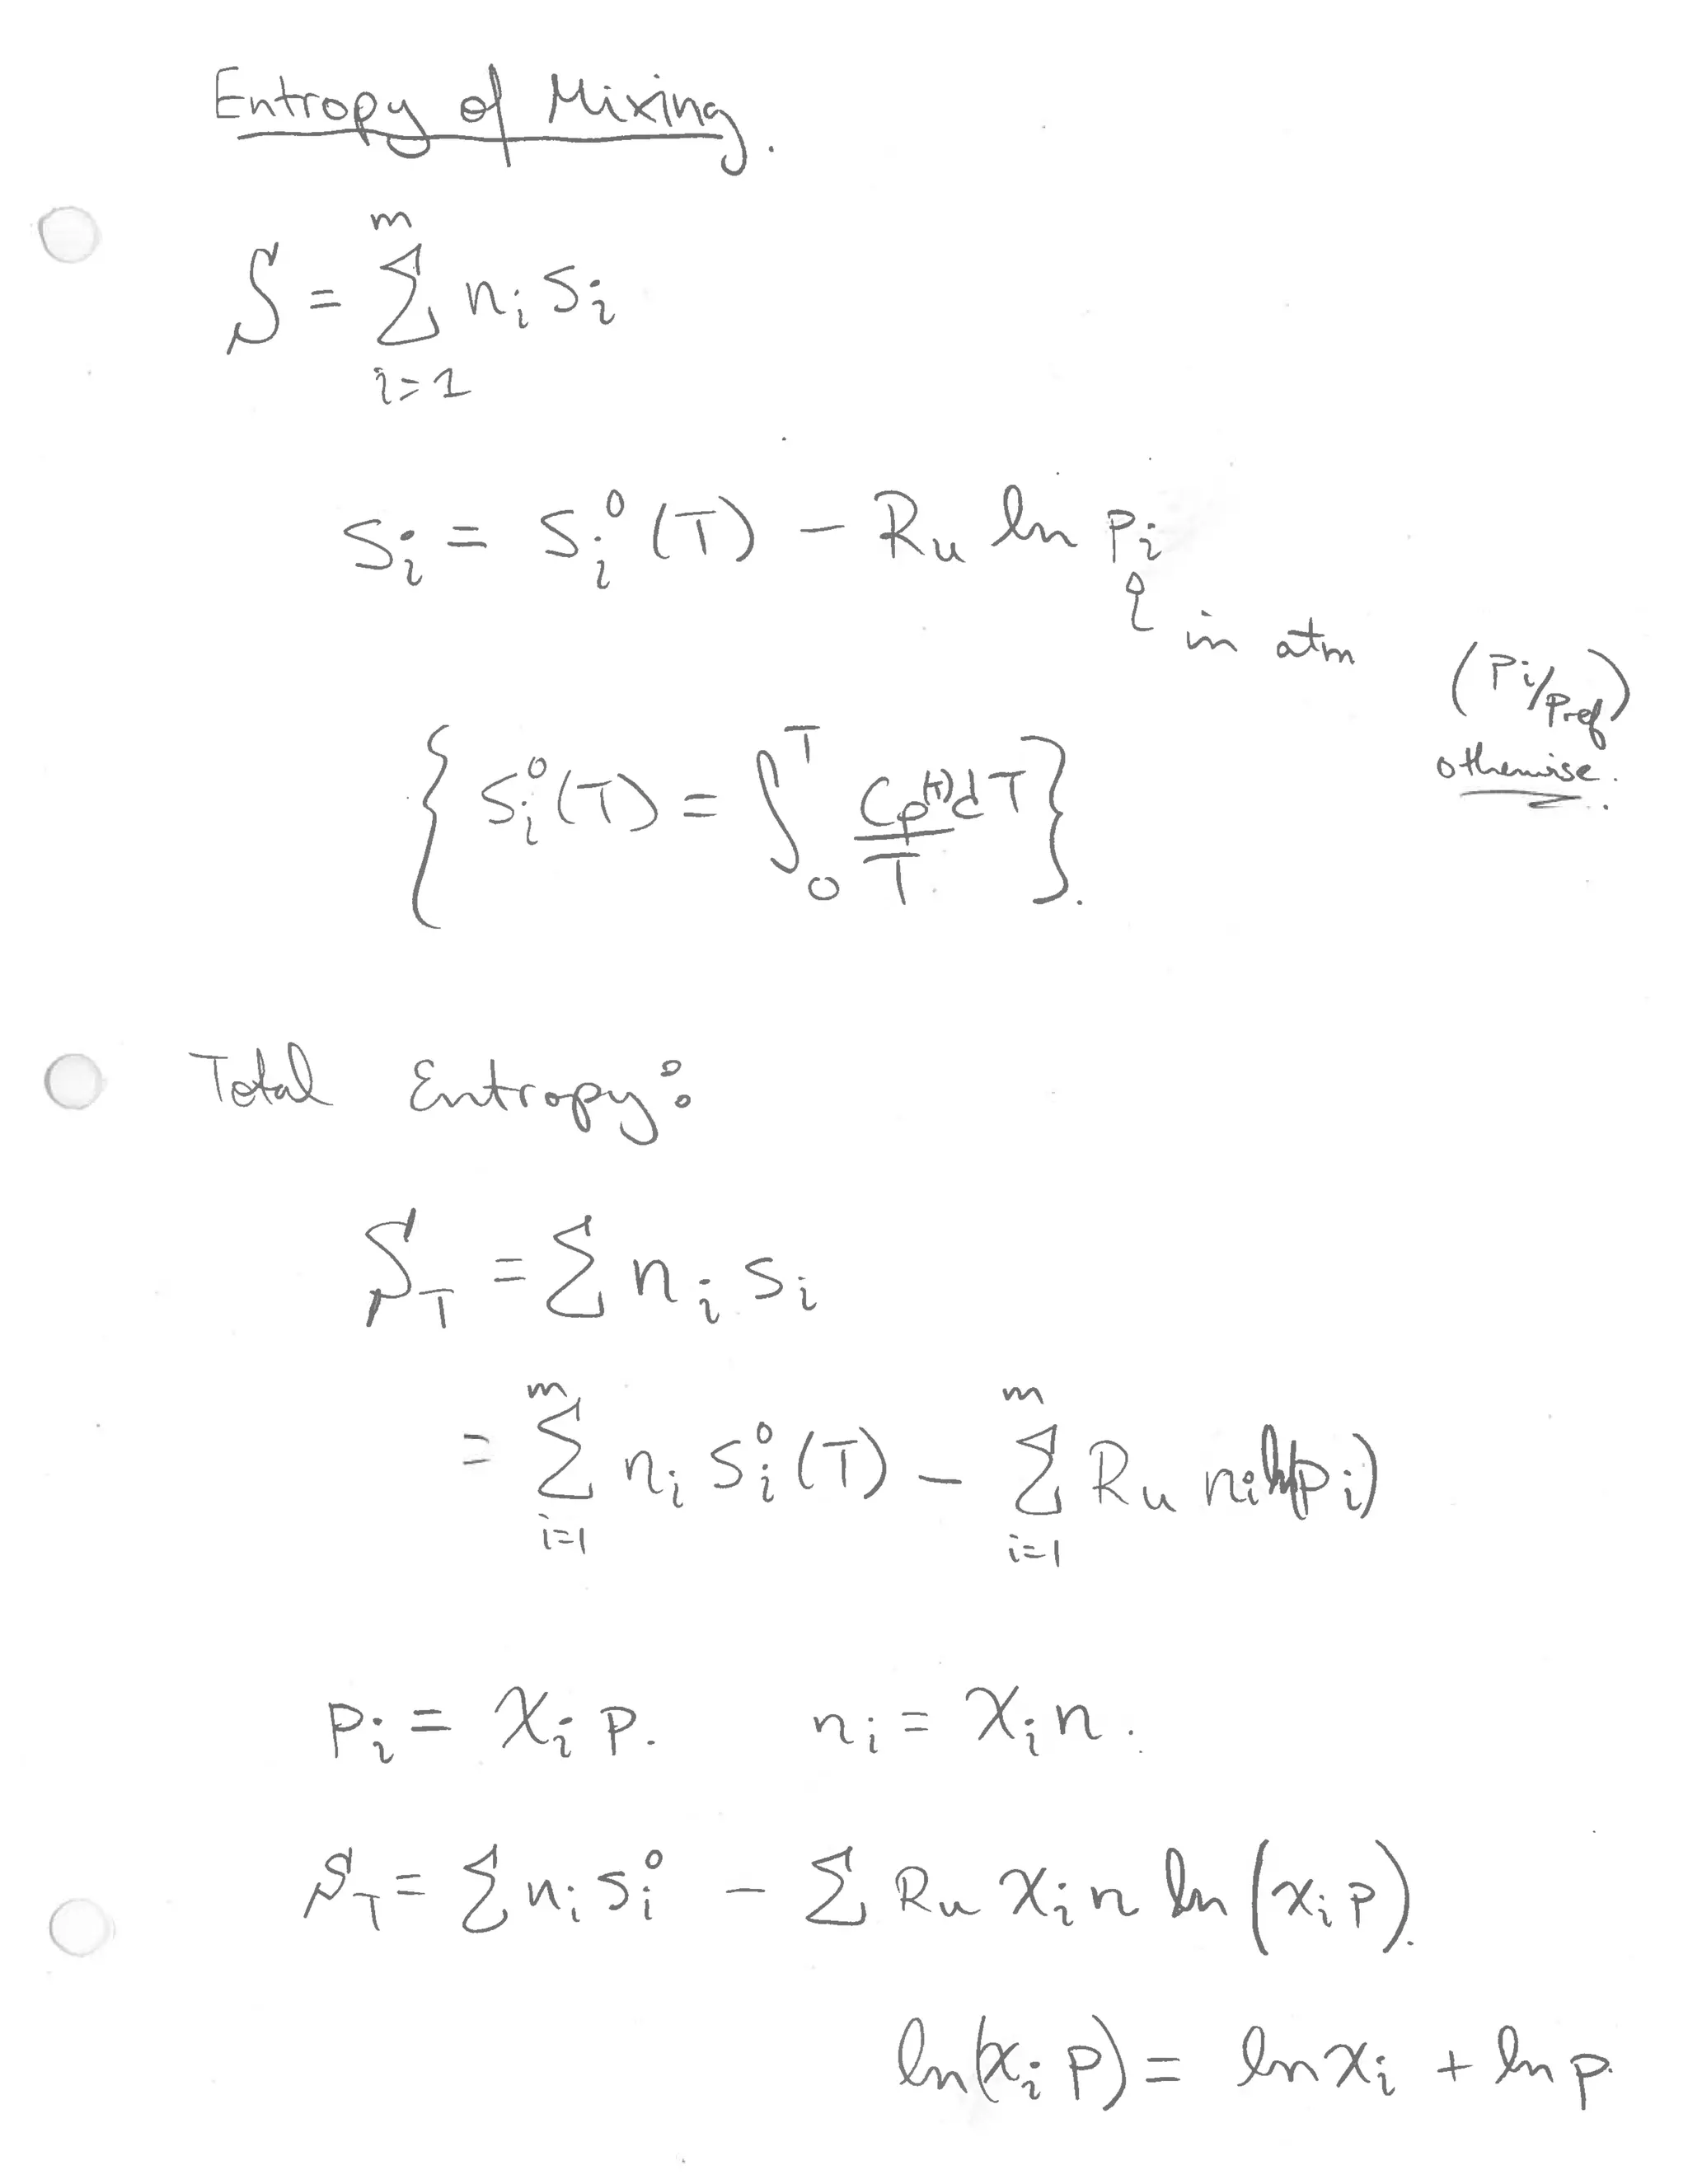 Entropy of Mixing.
S = Σ_{i=1}^{m} n_i s_i
s_i = s_i^0 (T) - R_u ln p_i
in atm (p_i/p_ref)
otherwise.
{ s_i^0 (T) = ∫_0^T C_p(T) dT / T }.
Total Entropy:
S_T = Σ n_i s_i
= Σ_{i=1}^{m} n_i s_i^0 (T) - Σ_{i=1}^{m} R_u n_i ln(p_i)
p_i = χ_i p. n_i = χ_i n.
S_T = Σ n_i s_i^0 - Σ R_u χ_i n ln (χ_i p).
ln(χ_i p) = ln χ_i + ln p.